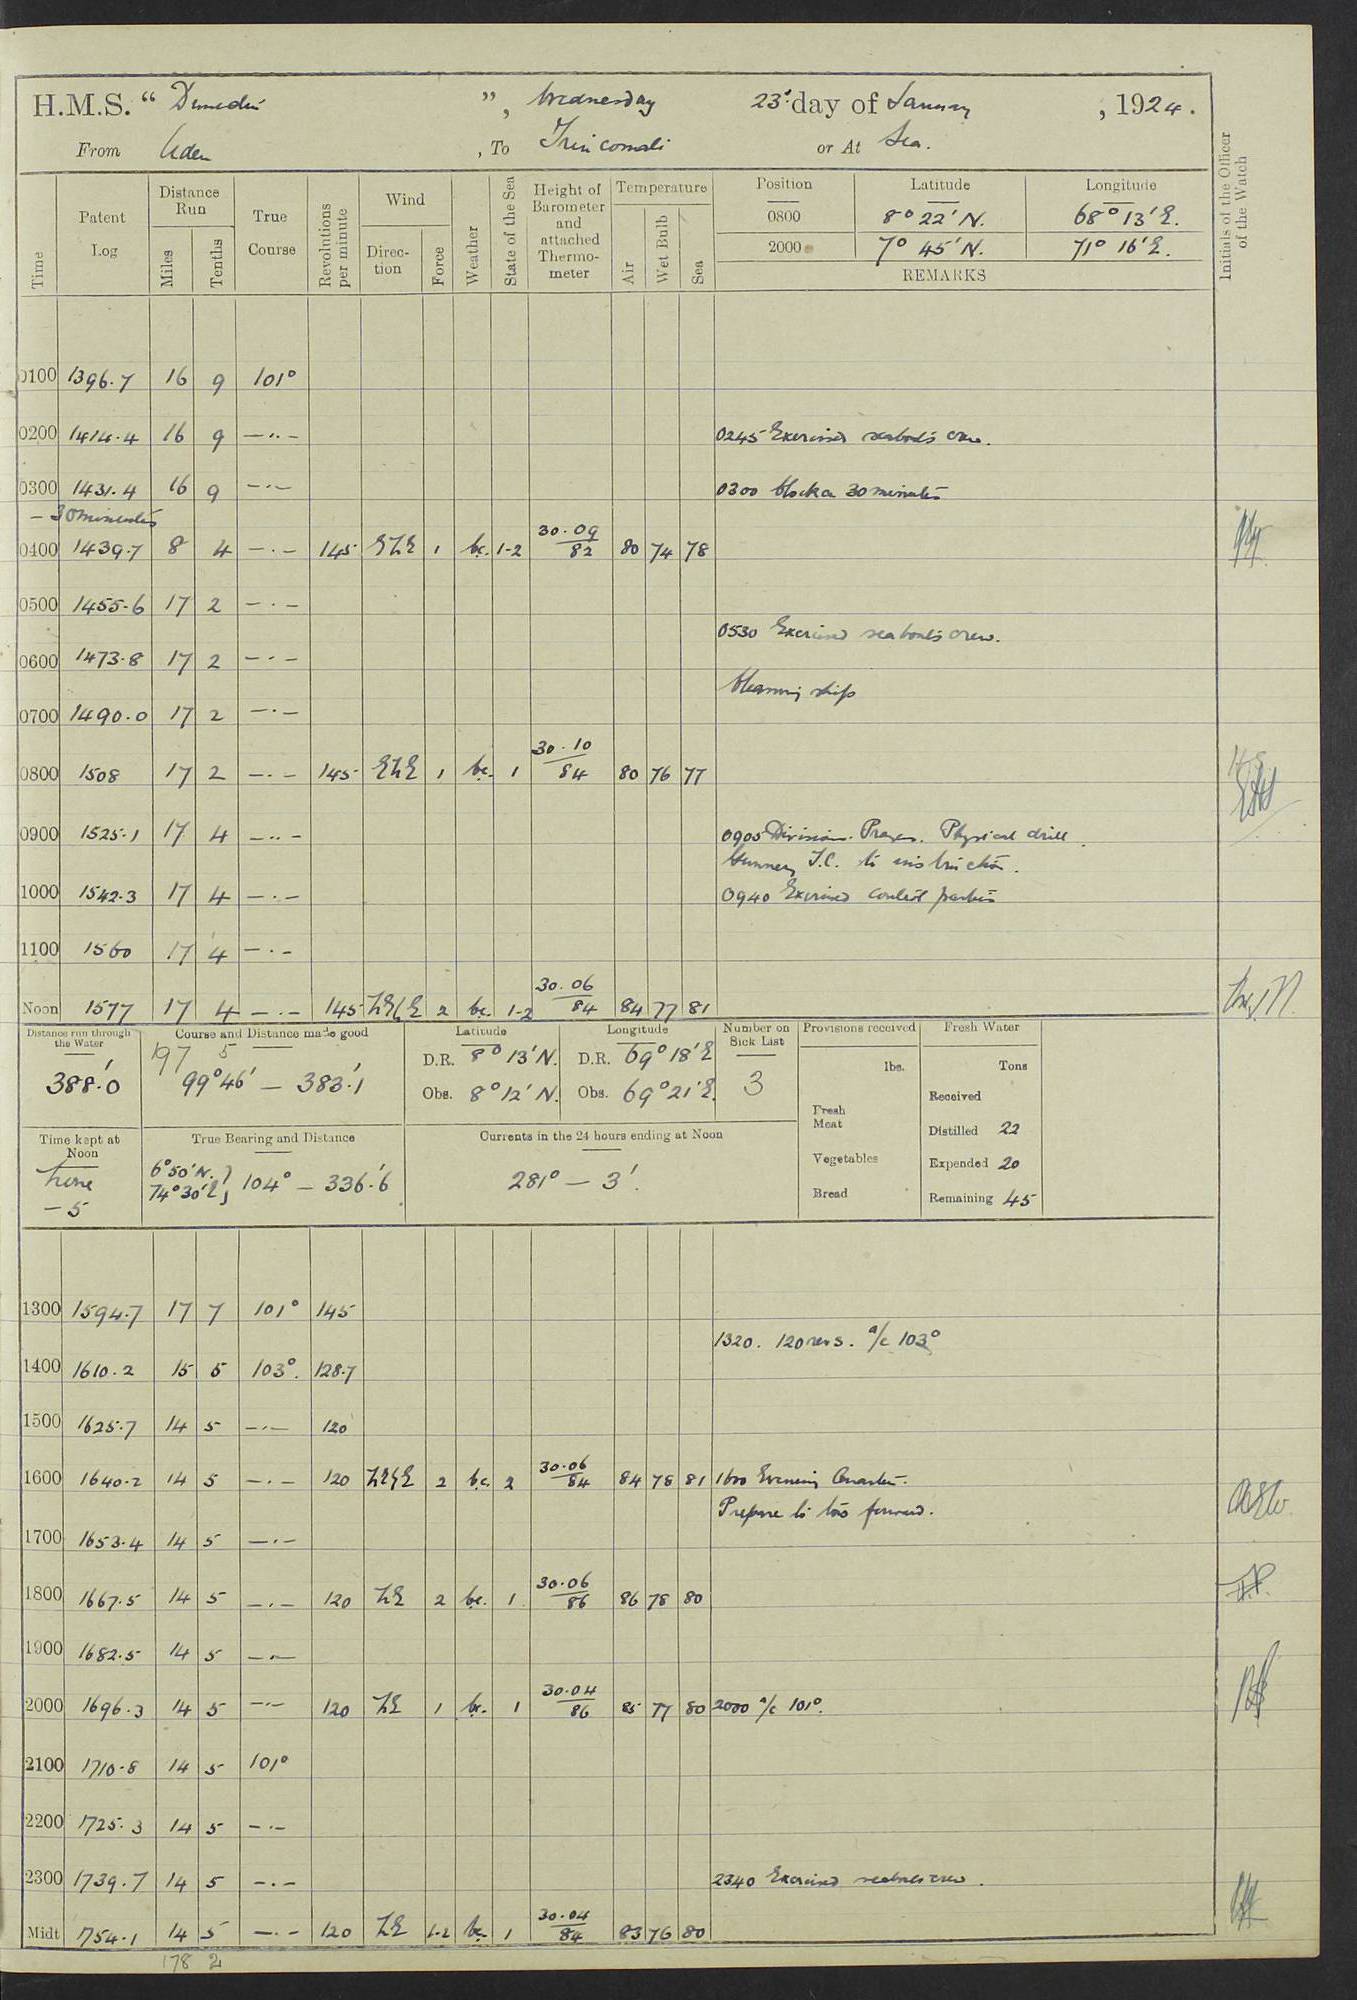 H.M.S. “ Dunedin ”, Wednesday 23rd day of January, 1924.
From Aden, To Trincomali or At Sea.
Time
Patent Log
Distance Run
Miles
Tenths
True Course
Revolutions per minute
Wind
Direction
Force
Weather
State of the Sea
Height of Barometer and attached Thermometer
Temperature
Air
Wet Bulb
Sea
Position Latitude Longitude
0800 8° 22' N. 68° 13' E.
2000 7° 45' N. 71° 16' E.
REMARKS
Initials of the Officer of the Watch
0100 1396.7 16 9 101°
0200 1414.4 16 9 —..— 0245 Exercised seaboat's crew.
0300 1431.4 16 9 —.— 0300 Clock on 30 minutes
— 30 minutes
0400 1439.7 8 4 —.— 145 ENE 1 bc. 1-2 30.09/82 80 74 78
0500 1455.6 17 2 —.—
0530 Exercised seaboat's crew.
0600 1473.8 17 2 —.—
Cleaning ship
0700 1490.0 17 2 —.—
0800 1508 17 2 —.— 145 ENE 1 bc. 1 30.10/84 80 76 77
0900 1525.1 17 4 —..— 0905 Divisions. Prayers. Physical drill.
Gunnery T.C. to instruction.
1000 1542.3 17 4 —.— 0940 Exercised control parties
1100 1560 17 4 —.—
Noon 1577 17 4 —.— 145 NE/E 2 bc. 1-2 30.06/84 84 77 81
Distance run through the Water
388.'0
Course and Distance made good
197 5
99°46' — 383.'1
Latitude
D.R. 8° 13' N.
Obs. 8° 12' N.
Longitude
D.R. 69° 18' E
Obs. 69° 21' E.
Number on Sick List
3
Provisions received
lbs.
Fresh Meat
Vegetables
Bread
Fresh Water
Tons
Received
Distilled 22
Expended 20
Remaining 45
Time kept at Noon
Zone
— 5
True Bearing and Distance
6°50' N. } 104° — 336.'6
74°30' E
Currents in the 24 hours ending at Noon
281° — 3'.
1300 1594.7 17 7 101° 145
1320. 120 revs. a/c 103°
1400 1610.2 15 5 103°. 128.7
1500 1625.7 14 5 —.— 120
1600 1640.2 14 5 —.— 120 2 bc. 2 30.06/84 84 78 81 1600 Evening Quarters.
Prepare to tow forward.
1700 1653.4 14 5 —.—
1800 1667.5 14 5 —.— 120 NE 2 bc. 1 30.06/86 86 78 80
1900 1682.5 14 5 —.—
2000 1696.3 14 5 —.— 120 NE 1 bc. 1 30.04/86 85 77 80 2000 a/c 101°.
2100 1710.8 14 5 101°
2200 1725.3 14 5 —.—
2300 1739.7 14 5 —.— 2340 Exercised seaboats crew.
Midt 1754.1 14 5 —.— 120 NE 1-2 bc. 1 30.04/84 83 76 80
178 2